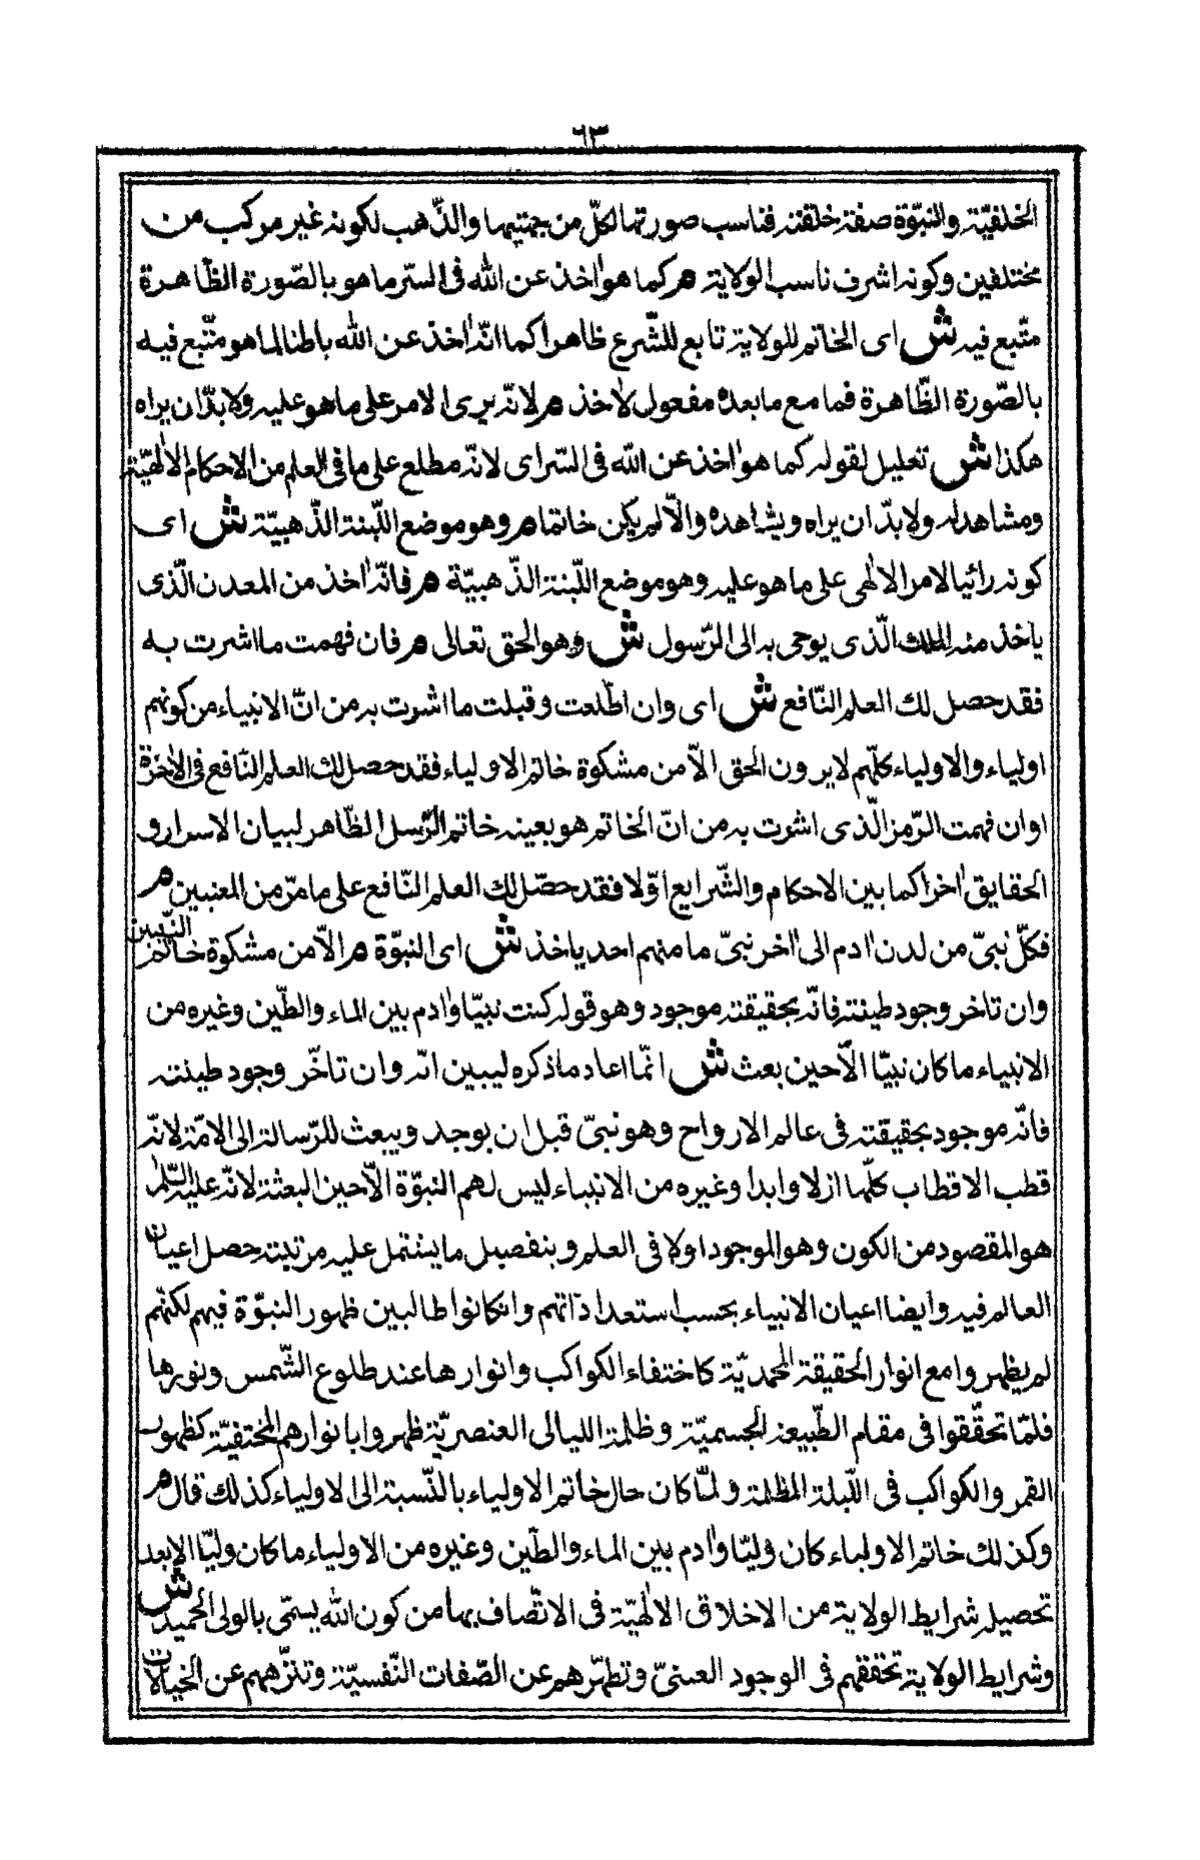 ٦٣
الخلقيّة والنبوّة صفة خلقته فناسب صورتها لكلّ من جهتيها والذّهب لكونه غير مركب من
مختلفين وكونه اشرف ناسب الولاية م كما هو اٰخذ عن الله فى السّر ما هو بالصّورة الظّاهرة
متّبع فيه ش اى الخاتم للولاية تابع للشّرع ظاهرا كما انّه اٰخذ عن الله باطنا لما هو متّبع فيه
بالصّورة الظّاهرة فما مع ما بعده مفعول لاٰخذ م لانّه يرى الامر على ما هو عليه ولا بدّ ان يراه
هكذا ش تعليل لقوله كما هو اٰخذ عن الله فى السّر اى لانّه مطلع على ما فى العلم من الاحكام الالٰهيّة
ومشاهد له ولا بدّ ان يراه ويشاهده والّا لم يكن خاتما م وهو موضع اللّبنة الذّهبيّة ش اى
كونه رائيا لامر الالٰهى على ما هو عليه وهو موضع اللّبنة الذّهبيّة م فانّه اٰخذ من المعدن الّذى
ياخذ منه الملك الّذى يوحى به الى الرّسول ش وهو الحق تعالى م فان فهمت ما اشرت به
فقد حصل لك العلم النّافع ش اى وان اطّلعت وقبلت ما اشرت به من انّ الانبياء من كونهم
اولياء والاولياء كلّهم لا يرون الحق الّا من مشكوة خاتم الاولياء فقد حصل لك العلم النّافع فى الاٰخرة
او ان فهمت الرّمز الّذى اشرت به من انّ الخاتم هو بعينه خاتم الرّسل الظّاهر لبيان الاسرار و
الحقايق اٰخرا كما بين الاحكام والشّرايع اوّلا فقد حصّل لك العلم النّافع على ما مرّ من المعنيين م
فكلّ نبىّ من لدن اٰدم الى اٰخر نبىّ ما منهم احد ياخذ ش اى النبوّة م الّا من مشكوة خاتم النّبيين
وان تاخر وجود طينته فانّه بحقيقته موجود وهو قوله كنت نبيّا واٰدم بين الماء والطّين وغيره من
الانبياء ما كان نبيّا الّا حين بعث ش انّما اعاد ما ذكره ليبين انّه وان تاخّر وجود طينته
فانّه موجود بحقيقته فى عالم الارواح وهو نبىّ قبل ان يوجد ويبعث للرّسالة الى الامّة لانّه
قطب الاقطاب كلّها ازلا وابدا وغيره من الانبياء ليس لهم النبوّة الّا حين البعثة لانّه عليه السّلٰم
هو المقصود من الكون وهو الموجود اولا فى العلم وبتفصيل ما يشتمل عليه مرتبته حصل اعيان
العالم فيه وايضا اعيان الانبياء بحسب استعداداتهم وان كانوا طالبين ظهور النبوّة فيهم لكنّهم
لم يظهروا مع انوار الحقيقة المحمديّة كاختفاء الكواكب وانوارها عند طلوع الشّمس ونورها
فلمّا تحقّقوا فى مقام الطّبيعة الجسميّة وظلمة الليالى العنصريّة ظهروا بانوارهم المختفيّة كظهور
القمر والكواكب فى اللّيلة المظلمة ولمّا كان حال خاتم الاولياء بالنّسبة الى الاولياء كذلك قال م
وكذلك خاتم الاولياء كان وليّا واٰدم بين الماء والطّين وغيره من الاولياء ما كان وليّا الا بعد
تحصيله شرايط الولاية من الاخلاق الالٰهيّة فى الاتّصاف بها من كون الله يسمّى بالولى الحميد ش
وشرايط الولاية تحققهم فى الوجود العينىّ وتطهّرهم عن الصّفات النّفسيّة وتنزّههم عن الخيالات